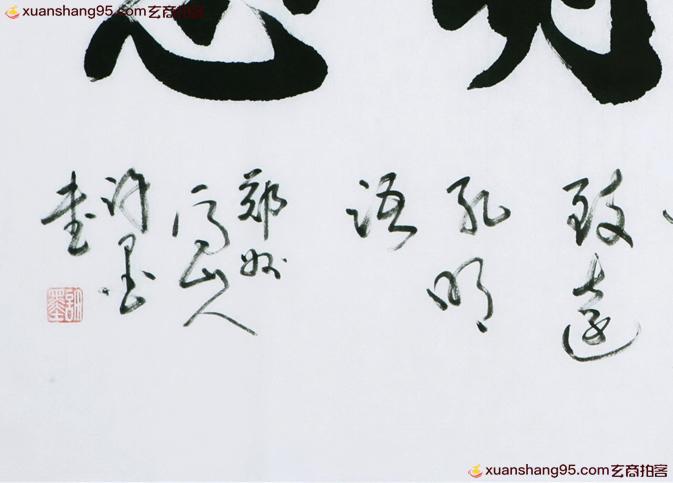 xuanshang95.com玄商拍客
致遠
孔明
语
郑州
山人
许墨
書
許墨
xuanshang95.com玄商拍客